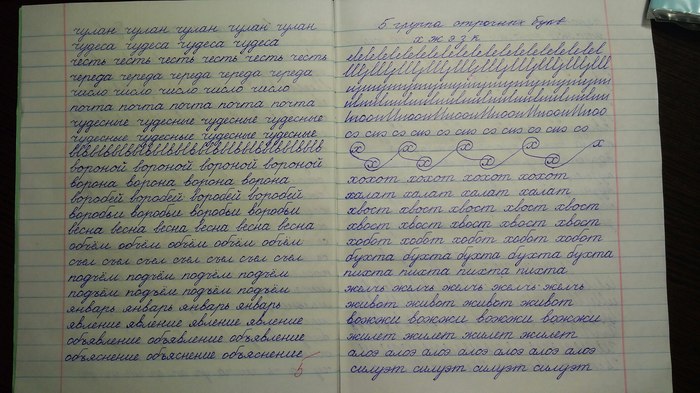 чулан чулан чулан чулан чулан
чудеса чудеса чудеса чудеса
честь честь честь честь честь честь
череда череда череда череда череда
число число число число число
почта почта почта почта почта
чудесные чудесные чудесные чудесные
чудесные чудесные чудесные чудесные
вороной вороной вороной вороной
ворона ворона ворона ворона
воробей воробей воробей воробей
воробьи воробьи воробьи воробьи
весна весна весна весна весна весна
объём объём объём объём объём
съел съел съел съел съел съел
подъём подъём подъём подъём
подъём подъём подъём подъём
январь январь январь январь
явление явление явление явление
объявление объявление объявление
объяснение объяснение объяснение
5
5 группа строчных букв
х ж э з к
х х х х х х х х
хохот хохот хохот хохот
халат халат халат халат
хвост хвост хвост хвост хвост
хвост хвост хвост хвост хвост
хобот хобот хобот хобот хобот
бухта бухта бухта бухта бухта
пихта пихта пихта пихта
желчь желчь желчь желчь желчь
живот живот живот живот
вожжи вожжи вожжи вожжи
жилет жилет жилет жилет
алоэ алоэ алоэ алоэ алоэ алоэ
силуэт силуэт силуэт силуэт